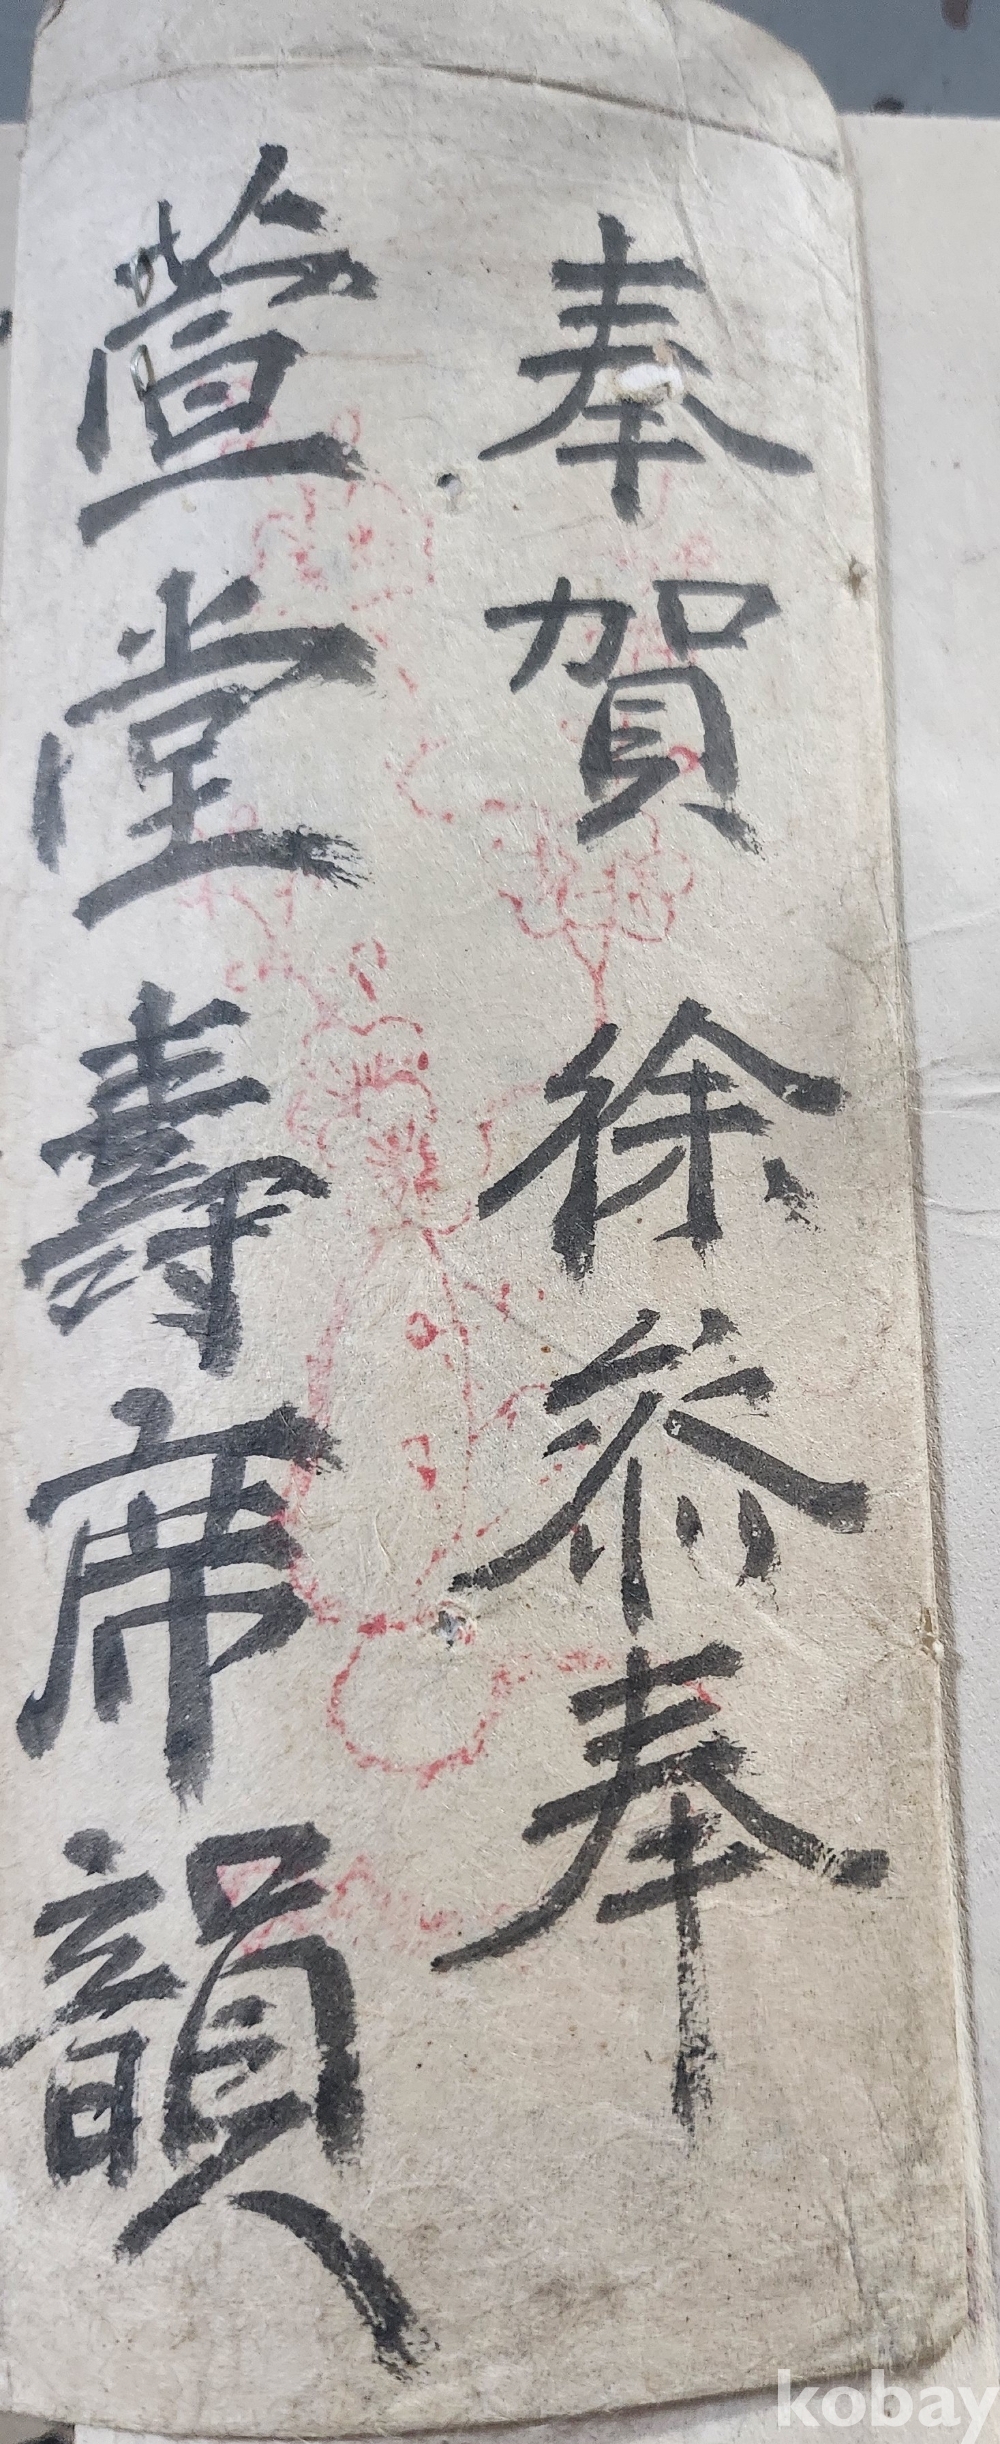 奉賀徐叅奉
萱堂壽席韻
kobay